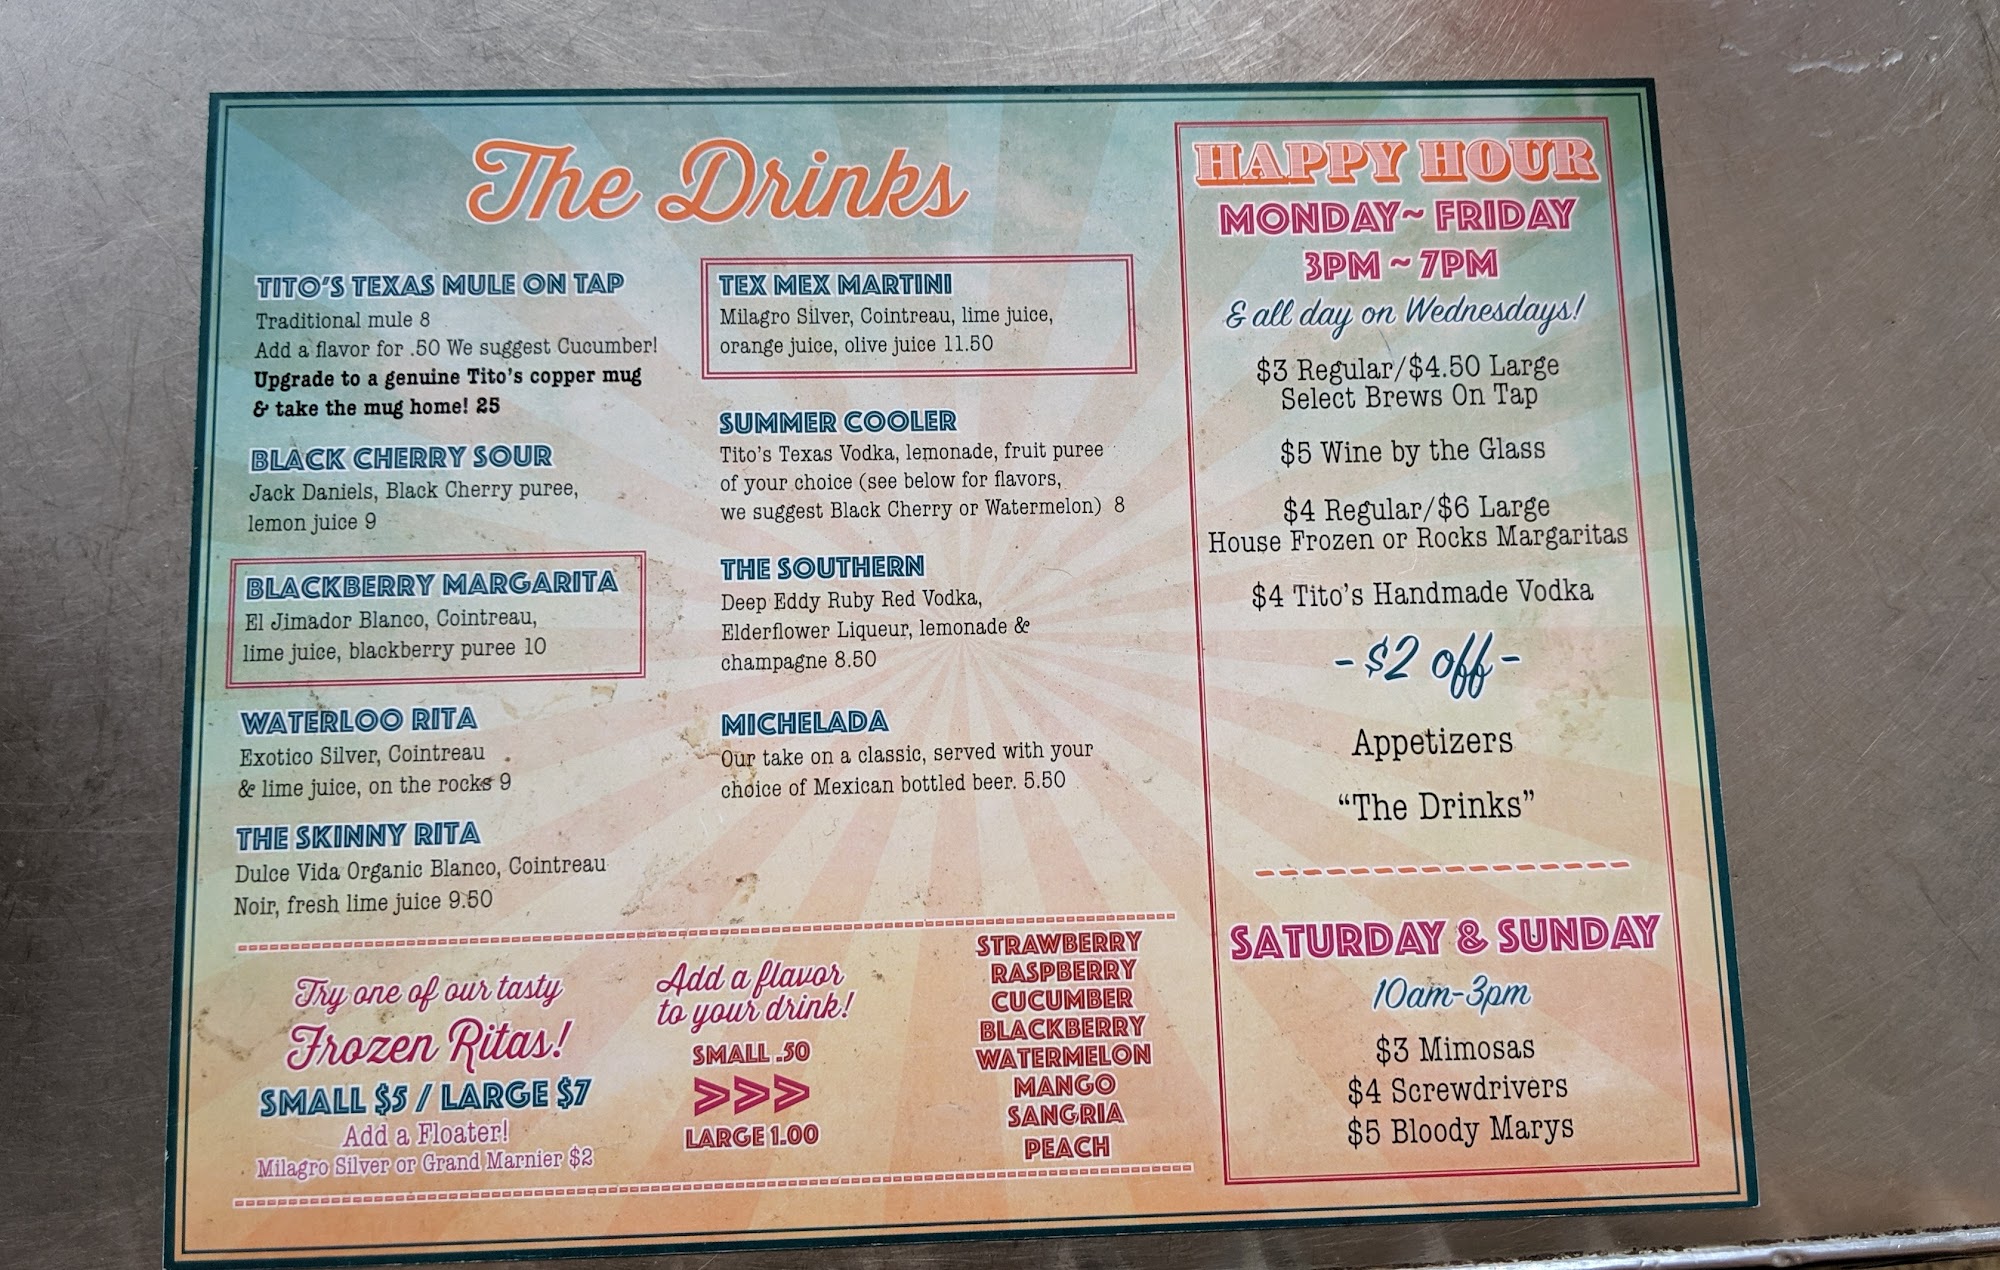 The Drinks
TITO'S TEXAS MULE ON TAP
Traditional mule 8
Add a flavor for .50 We suggest Cucumber!
Upgrade to a genuine Tito's copper mug
& take the mug home! 25
BLACK CHERRY SOUR
Jack Daniels, Black Cherry puree,
lemon juice 9
BLACKBERRY MARGARITA
El Jimador Blanco, Cointreau,
lime juice, blackberry puree 10
WATERLOO RITA
Exotico Silver, Cointreau
& lime juice, on the rocks 9
THE SKINNY RITA
Dulce Vida Organic Blanco, Cointreau
Noir, fresh lime juice 9.50
TEX MEX MARTINI
Milagro Silver, Cointreau, lime juice,
orange juice, olive juice 11.50
SUMMER COOLER
Tito's Texas Vodka, lemonade, fruit puree
of your choice (see below for flavors,
we suggest Black Cherry or Watermelon) 8
THE SOUTHERN
Deep Eddy Ruby Red Vodka,
Elderflower Liqueur, lemonade &
champagne 8.50
MICHELADA
Our take on a classic, served with your
choice of Mexican bottled beer. 5.50
Try one of our tasty
Frozen Ritas!
SMALL $5 / LARGE $7
Add a Floater!
Milagro Silver or Grand Marnier $2
Add a flavor
to your drink!
SMALL .50
>>>
LARGE 1.00
STRAWBERRY
RASPBERRY
CUCUMBER
BLACKBERRY
WATERMELON
MANGO
SANGRIA
PEACH
HAPPY HOUR
MONDAY~ FRIDAY
3PM ~ 7PM
& all day on Wednesdays!
$3 Regular/$4.50 Large
Select Brews On Tap
$5 Wine by the Glass
$4 Regular/$6 Large
House Frozen or Rocks Margaritas
$4 Tito's Handmade Vodka
- $2 off -
Appetizers
"The Drinks"
SATURDAY & SUNDAY
10am-3pm
$3 Mimosas
$4 Screwdrivers
$5 Bloody Marys